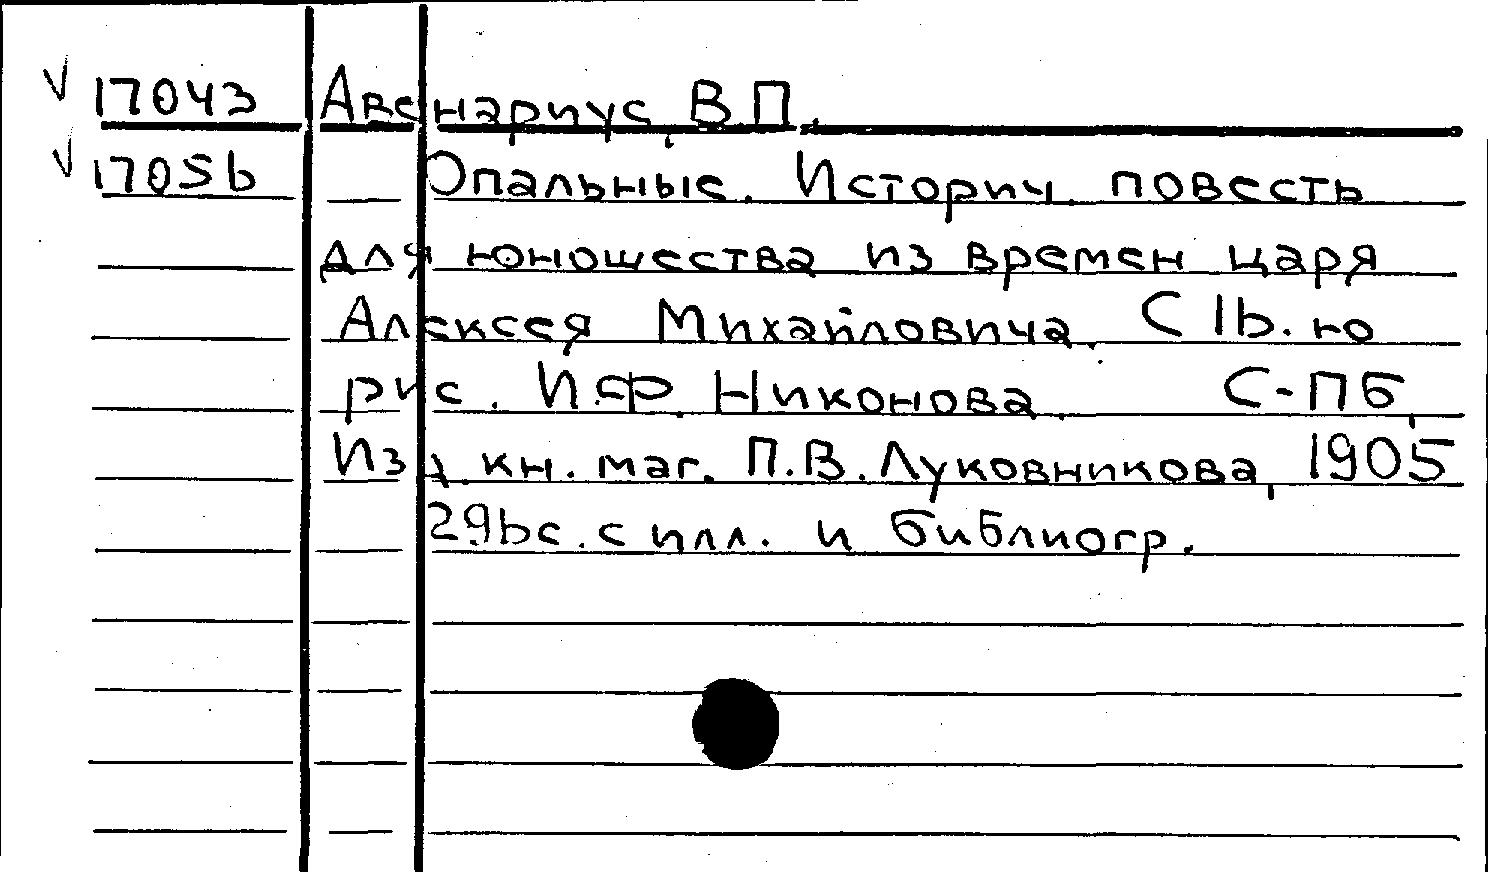 √ 17043 Авенариус, В.П.
√ 17056 Опальные. Историч. повесть
для юношества из времен царя
Алексея Михайловича. С 16.ю
рис. И.Ф. Никонова. С-ПБ,
Изд. кн. маг. П.В. Луковникова, 1905
296с. с илл. и библиогр.